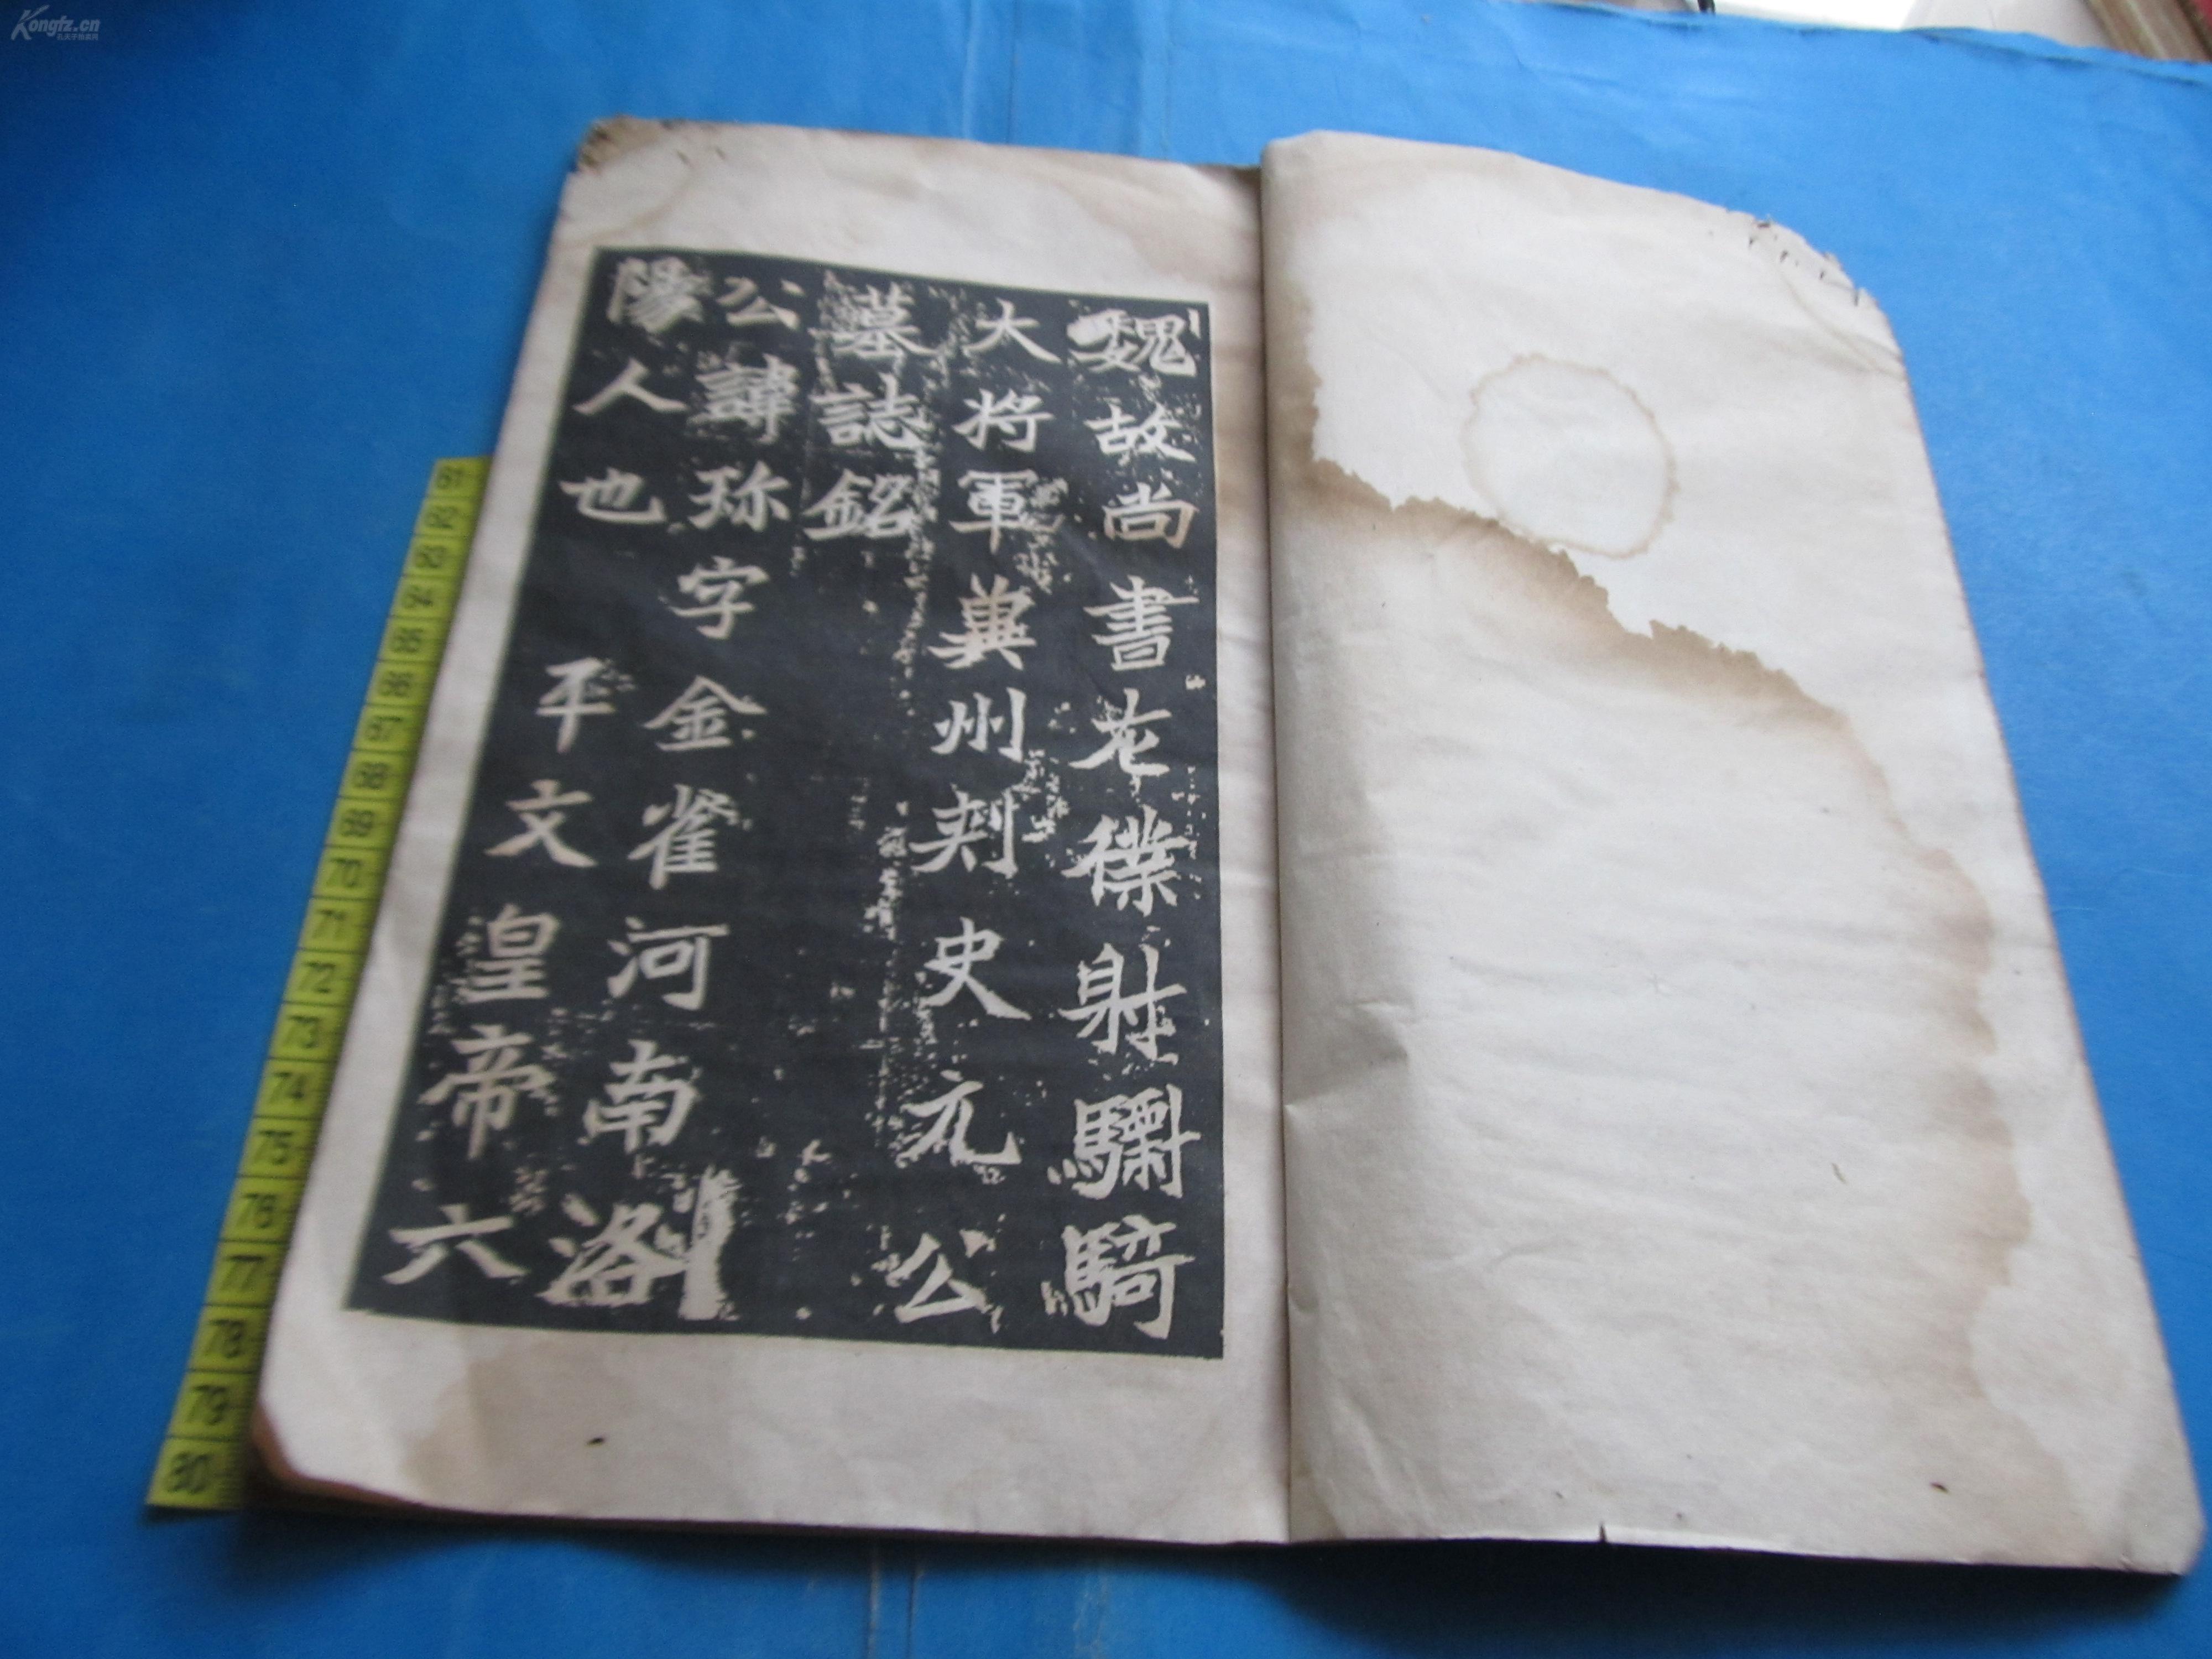 魏故尚書左僕射驃騎
大將軍冀州刺史元公
墓誌銘
公諱珎字金雀河南洛
陽人也 平文皇帝六
61
62
63
64
65
66
67
68
69
70
71
72
73
74
75
76
77
78
79
80
Kongfz.cn